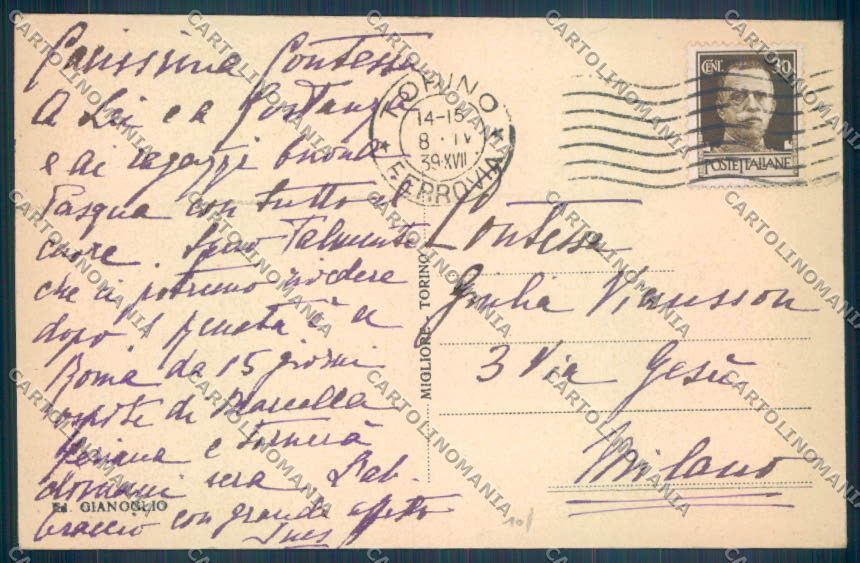 Carissima Contessa
A Lei e a Costanza
e ai ragazzi buona
Pasqua con tutto il
cuore. Spero talmente
che ci potremo vedere
dopo! Renata è a
Roma da 15 giorni
ospite di Marcella
e tornerà
domani sera. L'ab-
braccio con grande affetto
Ines
Ed. GIANOGLIO
MIGLIORE - TORINO
TORINO
14-15
8 · IV
39·XVII
FERROVIA
CENT. 30
POSTE ITALIANE
Contessa
Giulia
3 Via Gesù
Milano
CARTOLINOMANIA